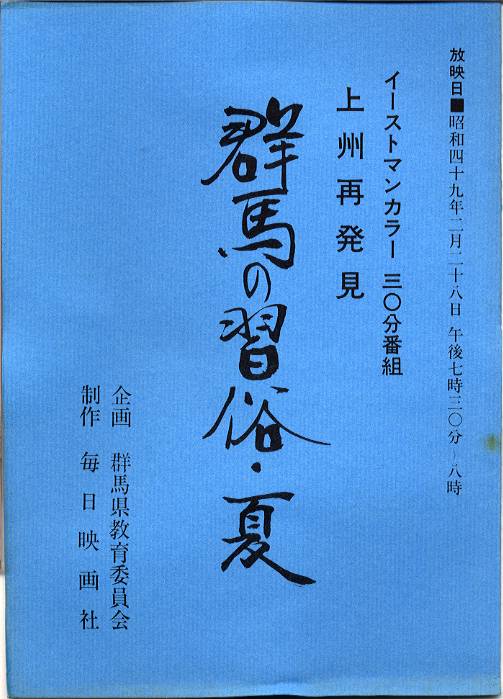 放映日■昭和四十九年二月二十八日 午後七時三〇分~八時
イーストマンカラー 三〇分番組
上州再発見
群馬の習俗・夏
企画 群馬県教育委員会
制作 毎日映画社